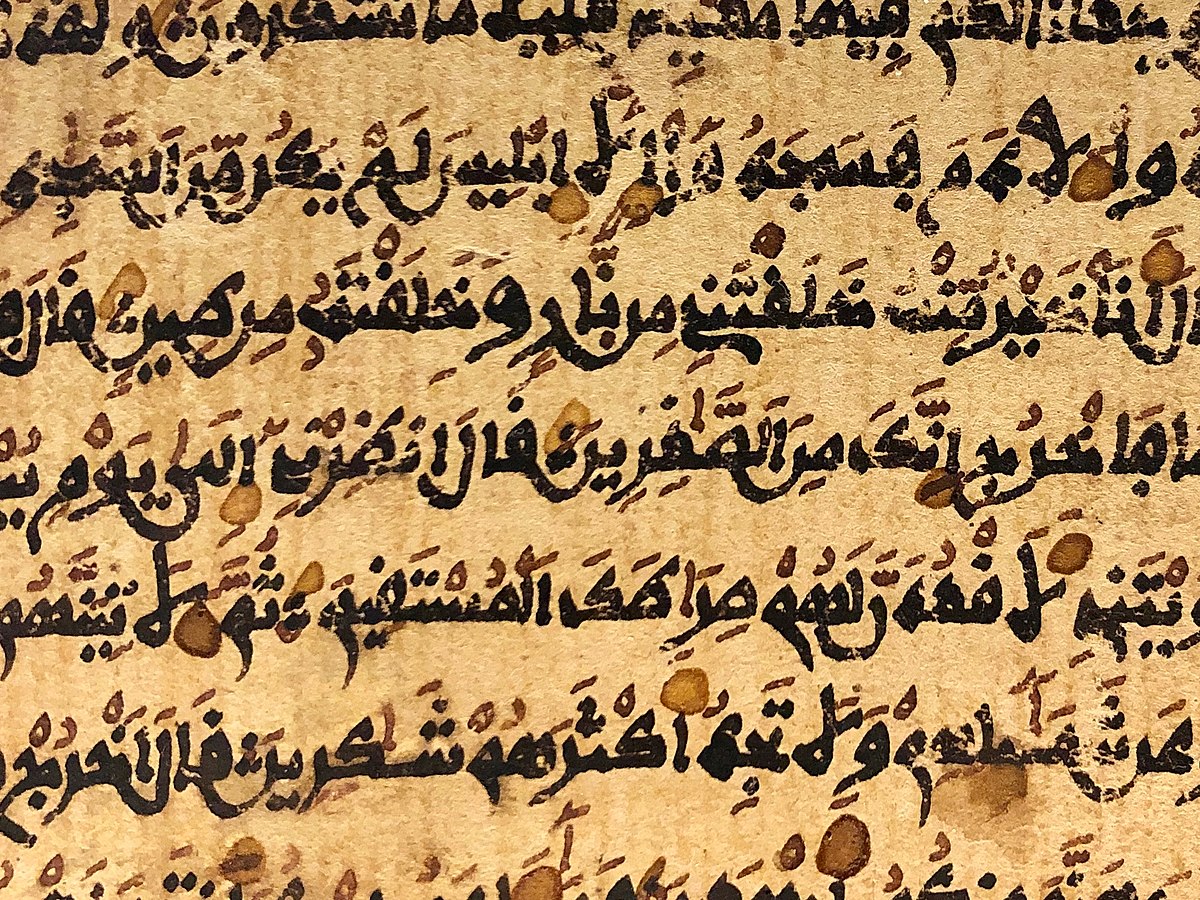 لكم فيها معيش قليلا ما تشكرون ولقد
وا لادم فسجدوا الا ابليس لم يكن من السجدي
انا خير منه خلقتني من نار وخلقته من طين قال
فاخرج انك من الصغرين قال انظرني الى يوم
ويتني لاقعدن لهم صرطك المستقيم ثم لاتينهم
عن شمئلهم ولا تجد اكثرهم شكرين قال اخرج